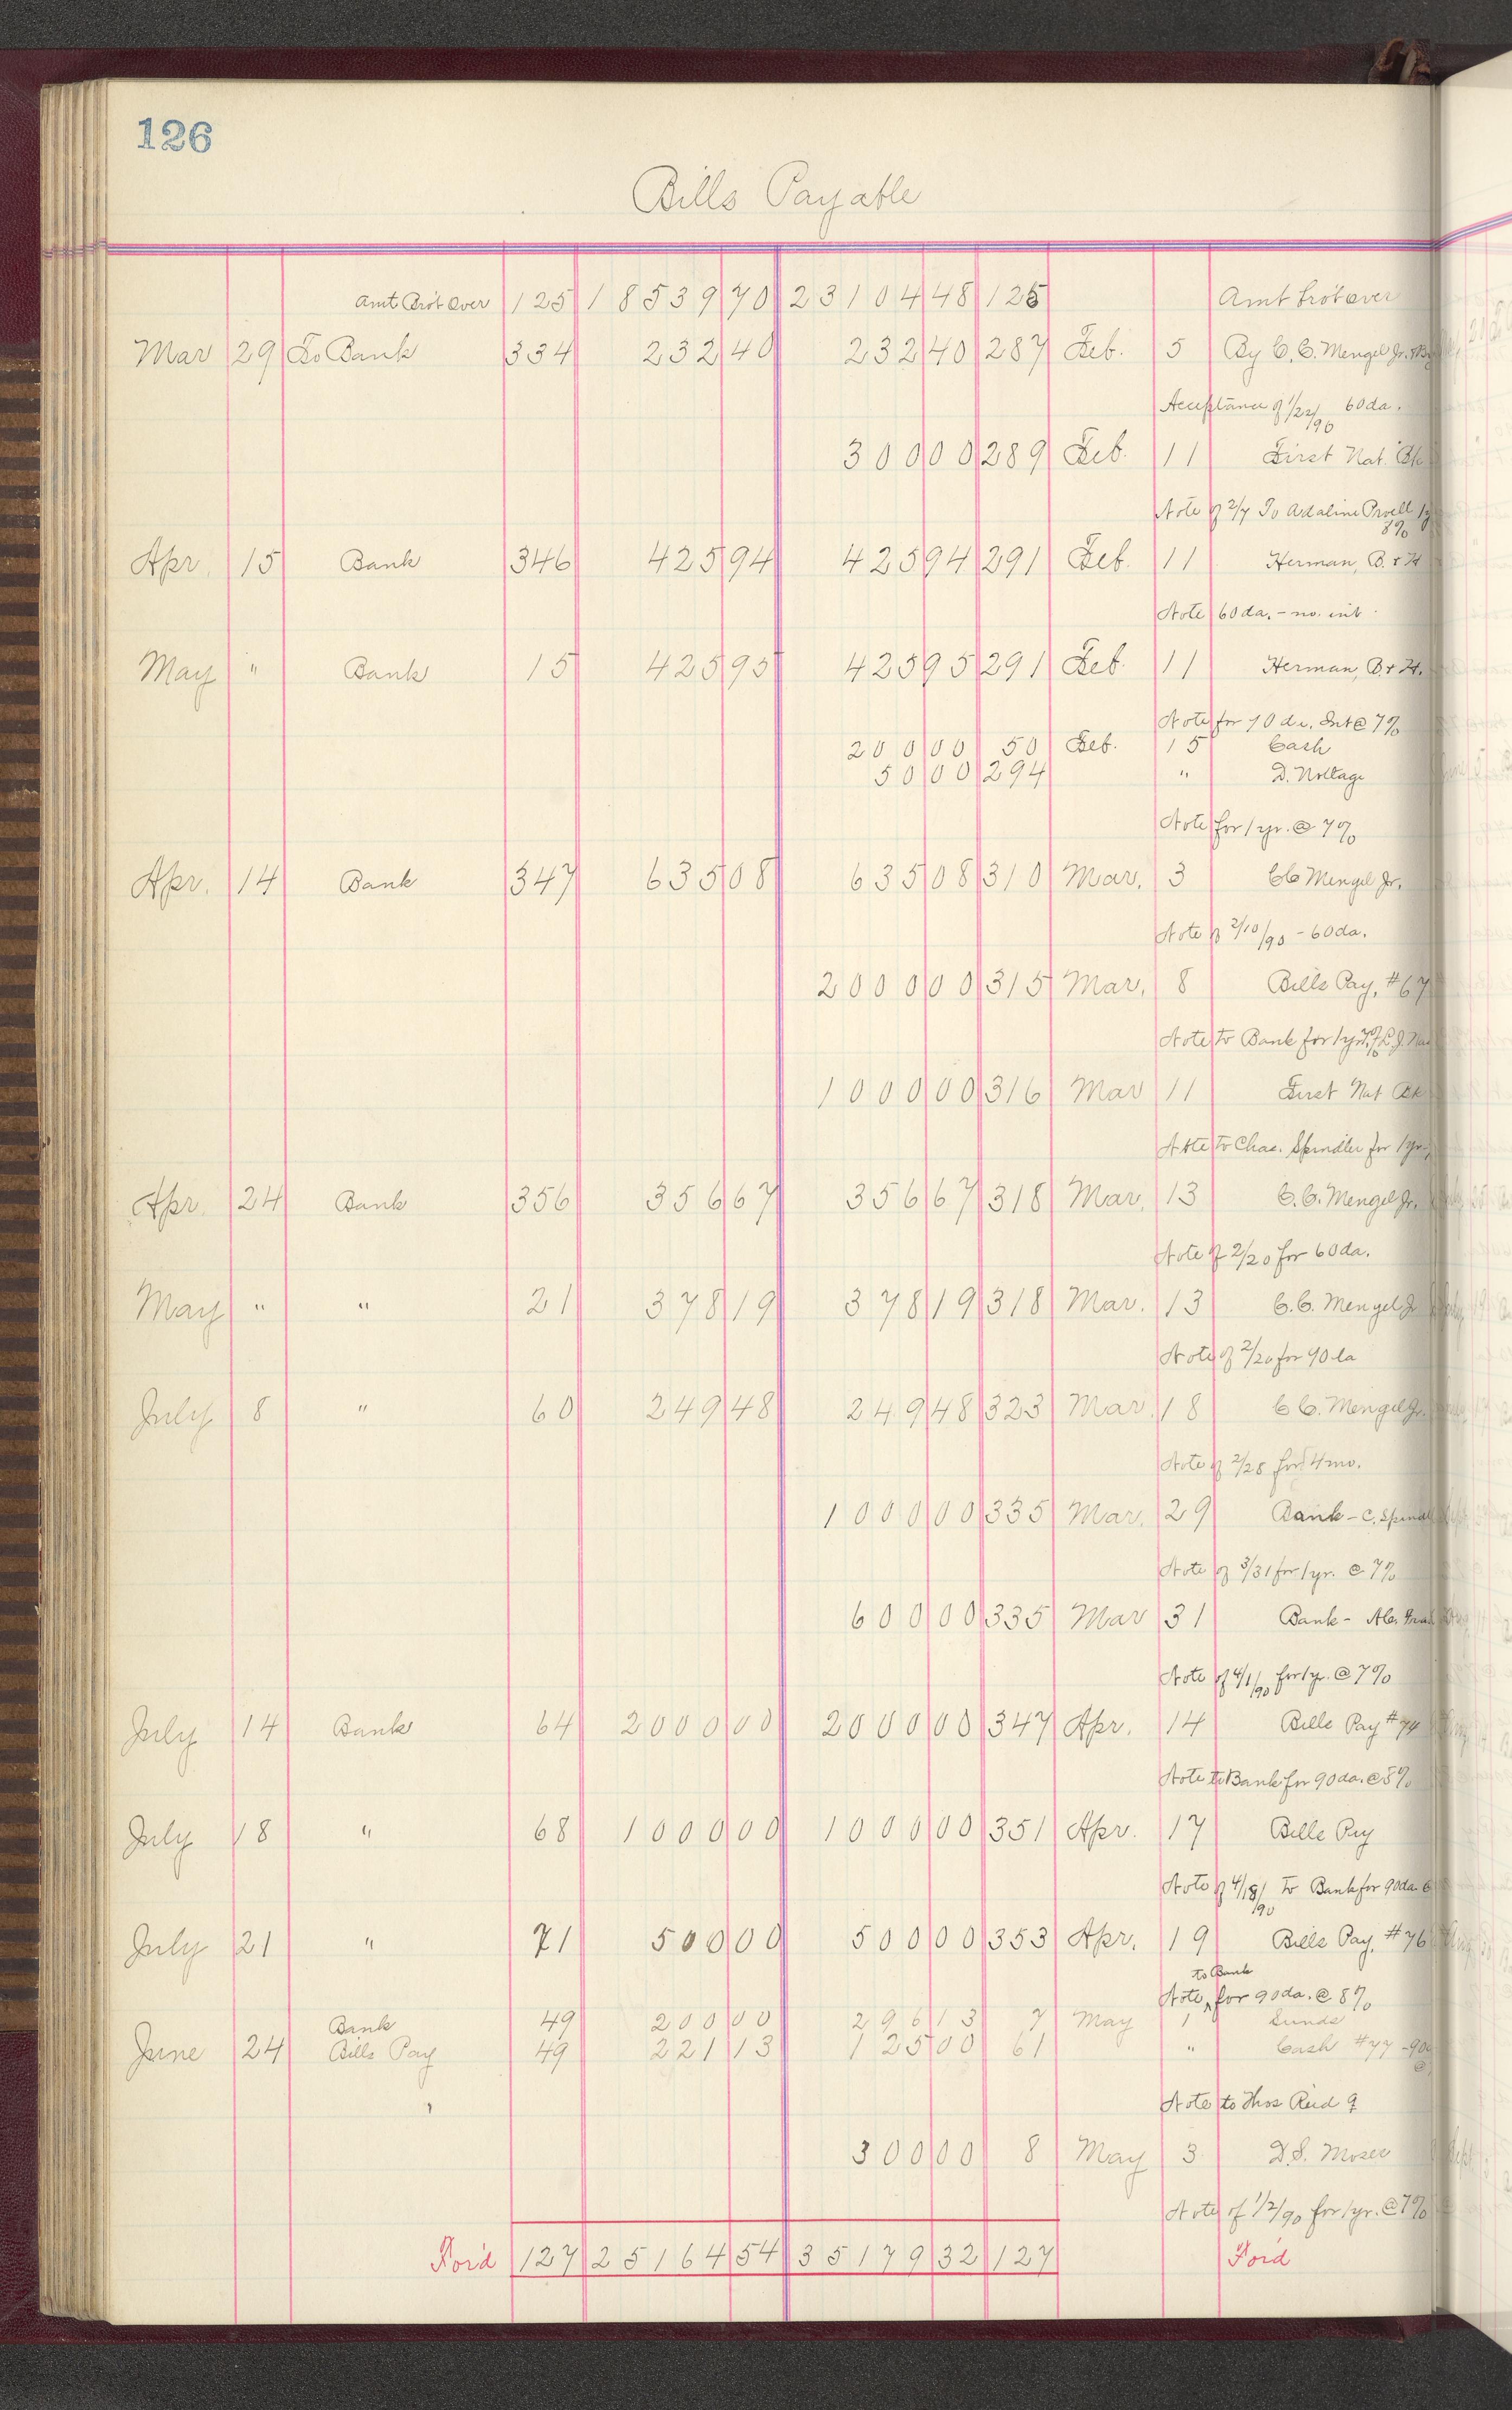 126
Bills Payable
Amt Brot Over 125 18539 70 23104 48 125 Amt brot over
Mar 29 To Bank 334 232 40 232 40 287 Feb. 5 By C. C. Mengel Jr. &
Acceptance of 1/22/90 60 da.
300 00 289 Feb. 11 First Nat. Bk
Note of 2/7 To Adaline Proell 1y
8%
Apr. 15 Bank 346 425 94 425 94 291 Feb. 11 Herman, B. & H
Note 60 da. - no. int.
May " Bank 15 425 95 425 95 291 Feb. 11 Herman, B. & H.
Note for 90 da. Int @ 7%
200 00 50 Feb. 15 Cash
50 00 294 " D. Nottage
Note for 1 yr. @ 7%
Apr. 14 Bank 347 635 08 635 08 310 Mar. 3 CC Mengel Jr.
Note of 2/10/90 - 60 da.
2000 00 315 Mar. 8 Bills Pay. #67
Note to Bank for 1 yr.
1000 00 316 Mar 11 First Nat Bk
Note to Chas. Spindler for 1 yr.
Apr. 24 Bank 356 356 67 356 67 318 Mar. 13 C. C. Mengel Jr.
Note of 2/20 for 60 da.
May " " 21 378 19 378 19 318 Mar. 13 C. C. Mengel Jr
Note of 2/20 for 90 da
July 8 " 60 249 48 249 48 323 Mar. 18 C C. Mengel Jr.
Note of 2/28 for 4 mo.
1000 00 335 Mar. 29 Bank - C. Spindl
Note of 3/31 for 1 yr. @ 7%
600 00 335 Mar 31 Bank -
Note of 4/1/90 for 1 yr. @ 7%
July 14 Bank 64 2000 00 2000 00 347 Apr. 14 Bills Pay #74
Note to Bank for 90 da. @ 8%
July 18 " 68 1000 00 1000 00 351 Apr. 17 Bills Pay
Note of 4/18/90 To Bank for 90 da.
July 21 " 71 500 00 500 00 353 Apr. 19 Bills Pay. #76
to Bank
Note ^ for 90 da. @ 8%
Bank 49 200 00 296 13 7 May 1 Sunds
June 24 Bills Pay 49 221 13 125 00 61 " Cash #77 - 90
@
Note to Thos Reid
300 00 8 May 3 D. S. Moser
Note of 1/2/90 for 1 yr. @ 7%
For'd 127 25164 54 35179 32 127 For'd